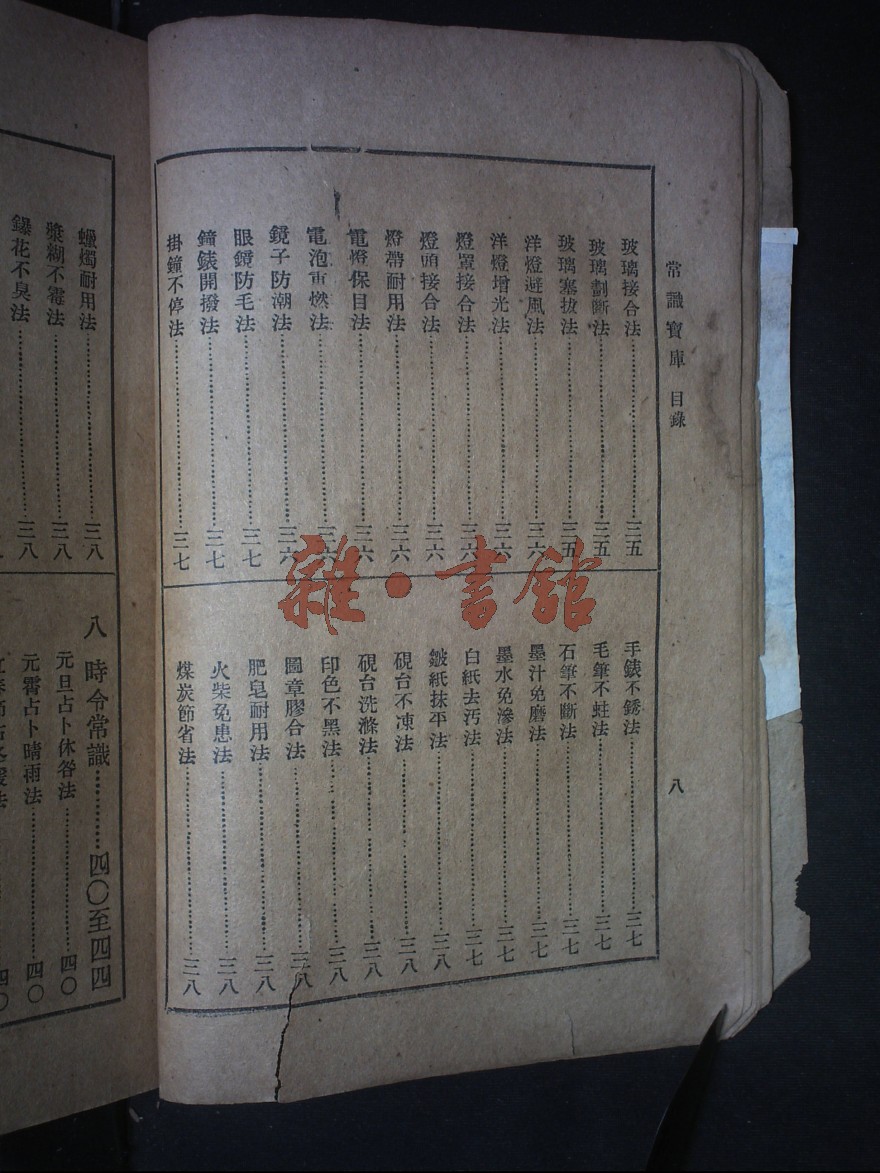 常識寶庫 目錄
八
玻璃接合法……三五
玻璃劃斷法……三五
玻璃塞拔法……三五
洋燈避風法……三六
洋燈增光法……三六
燈罩接合法……三六
燈頭接合法……三六
燈帶耐用法……三六
電燈保目法……三六
電泡重燃法……三六
鏡子防潮法……三六
眼鏡防毛法……三七
鐘錶開撥法……三七
掛鐘不停法……三七
手錶不銹法……三七
毛筆不蛀法……三七
石筆不斷法……三七
墨汁免磨法……三七
墨水免滲法……三七
白紙去汚法……三七
皺紙抹平法……三八
硯台不凍法……三八
硯台洗滌法……三八
印色不黑法……三八
圖章膠合法……三八
肥皂耐用法……三八
火柴免患法……三八
煤炭節省法……三八
蠟燭耐用法……三八
漿糊不霉法……三八
鑤花不臭法……三八
八 時令常識……四〇至四四
元旦占卜休咎法……四〇
元霄占卜晴雨法……四〇
雜·書館